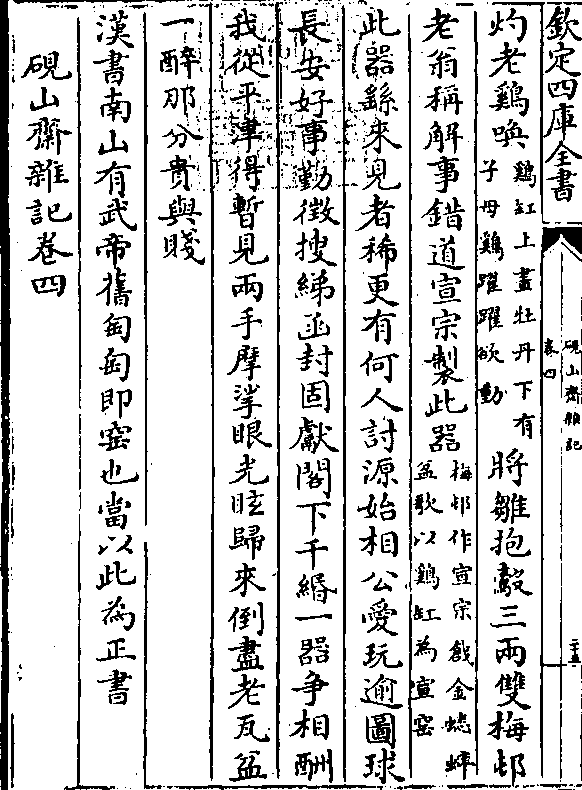 欽定四庫全書
硯山齋雜記
卷四
二十五
灼老鷄喚鷄缸上畫牡丹下有子母鷄躍躍欲動將雛抱鷇三兩雙梅邨
老翁稱解事錯道宣宗製此器梅邨作宣宗戧金蟋蟀盆歌以鷄缸為宣窑
此器繇來見者稀更有何人討源始相公愛玩逾圖球
長安好事勤徵搜綈函封固獻閣下千緡一器争相酬
我從平津得暫見兩手摩挲眼光眩歸來倒盡老瓦盆
一醉那分貴與賤
漢書南山有武帝舊匋匋即窑也當以此為正書
硯山齋雜記卷四